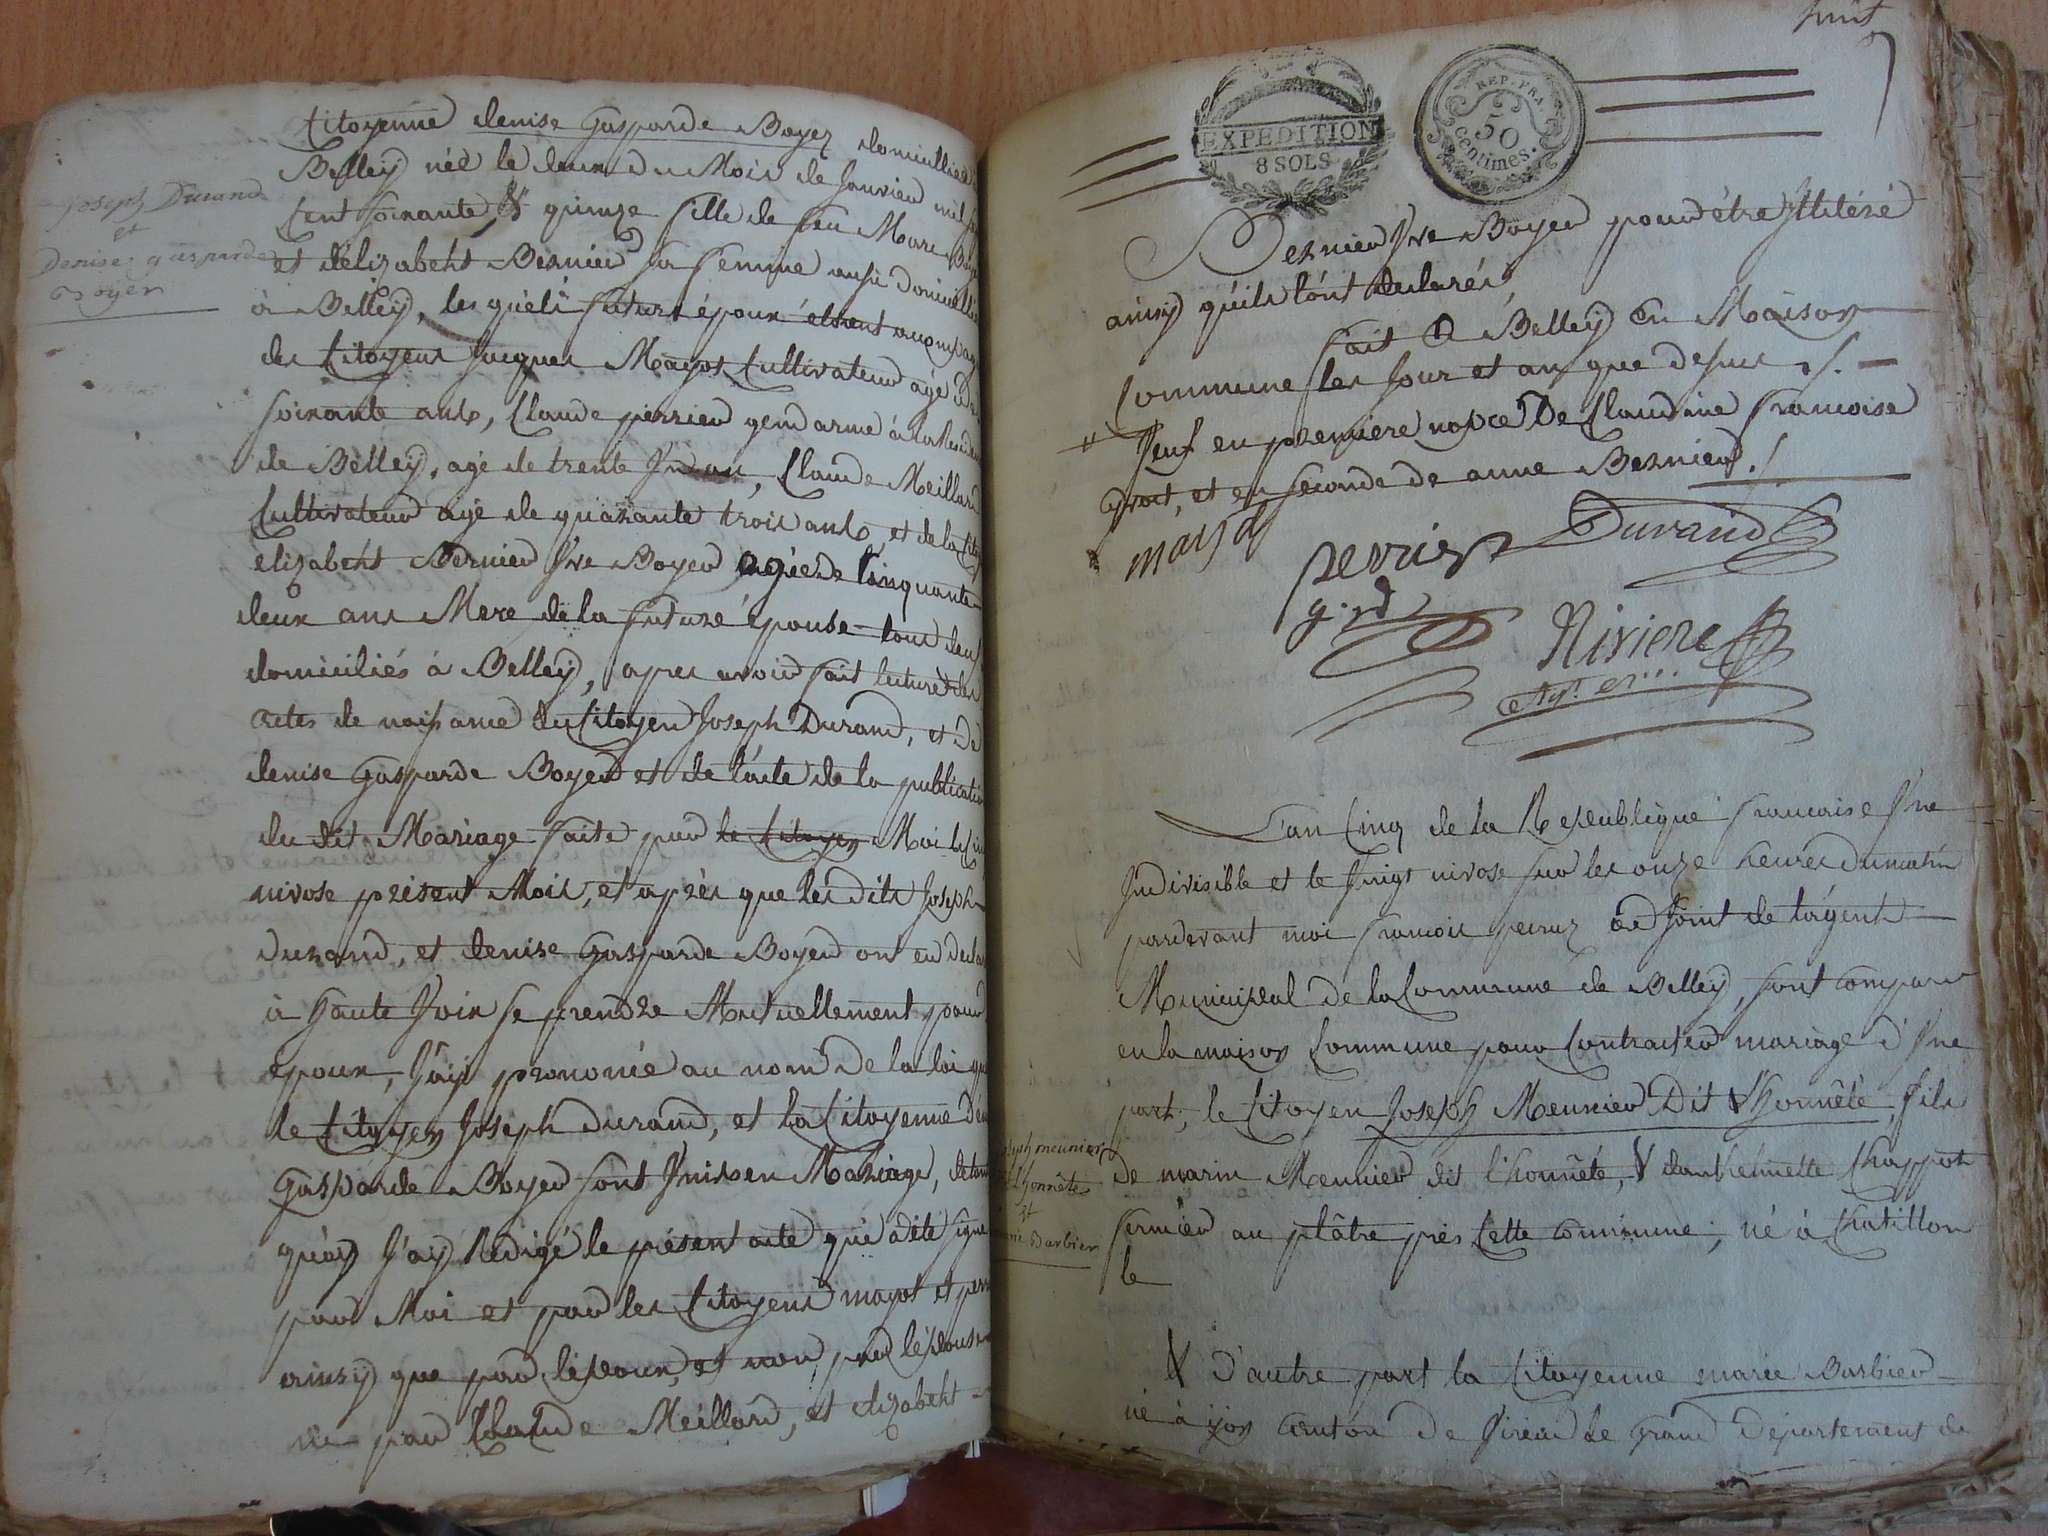 Joseph Durand
et
Denise gasparde
Boyer
Citoyenne denise Gasparde Boyer domicilliée
Belley née le deux du Mois de Janvier mil
Cent soixante & quinze fille de feu Marc
et d'élizabeht Bernier sa femme aussi
à Belley, les quels futurs époux étoient
des Citoyens Jacques Mayot Cultivateur agé de
soixante ans, Claude perrier gendarme à la
de Belley, agé de trente Un ans, Claude Meillard
Cultivateur agé de quarante trois ans, et de la
élizabeht Bernier Vve Boyer agée de Cinquante
deux ans Mere de la future épouse tous
domiciliés à Belley, apres avoir fait lecture des
actes de naissance du Citoyen Joseph Durand, et de
denise Gasparde Boyer et de l'acte de la
du dit Mariage faite par le Citoyen Moi le
nivose présent Mois, et après que les dits Joseph
durand, et denise Gasparde Boyer ont eu
à haute Voix se prendre Mutuellement pour
époux, J'ai prononcé au nom de la loi que
le Citoyen Joseph Durand, et la Citoyenne
Gasparde Boyer sont Unis en Mariage,
quoy J'ay Redigé le présent acte qui a été
par Moi et par les Citoyens mayot et
ainsy que par l'époux, et non par l'épouse
ni par Claude Meillard, et élizabeht
huit
EXPEDITION
8 SOLS
REP. FRA.
50
Centimes.
Bernier Vve Boyer pour être Illitéré
ainsy qu'ils l'ont déclarés
fait à Belley en Maison
Commune les Jour et an que dessus
Veuf en premiere nopce de Claudine francoise
droit, et en seconde de anne Bernier.
mayot
perrier Durand
g.rd
Riviere
L'an Cinq de la République francaise Une
Indivisible et le Vingt nivose sur les onze heures du matin
pardevant moi francois peruz adjoint de l'agent
Municipal de la Commune de Belley, sont comparu
en la maison Commune pour Contracter mariage d'Une
part, le Citoyen Joseph Meunier Dit l'honnête, fils
de marin Meunier dit l'honnête, & danthelmette Chappot
fermier au plâtre près Cette commune, né à Chatillon
le
Joseph meunier
l'honnête
et
marie Barbier
& d'autre part la Citoyenne marie Barbier
né à Canton de Virieu le grand Département de